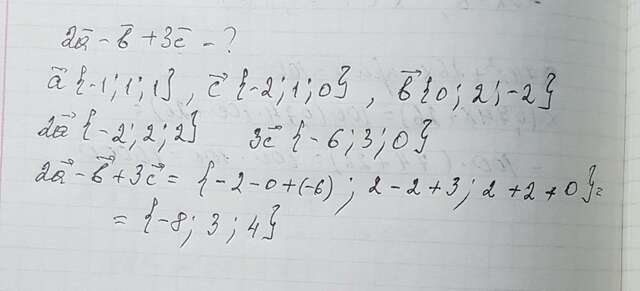 2a̅ - b̅ + 3c̅ - ?
a⃗ {-1; 1; 1}, c⃗ {-2; 1; 0}, b⃗ {0; 2; -2}
2a⃗ {-2; 2; 2} 3c⃗ {-6; 3; 0}
2a⃗ - b⃗ + 3c⃗ = {-2-0+(-6); 2-2+3; 2+2+0}=
= {-8; 3; 4}